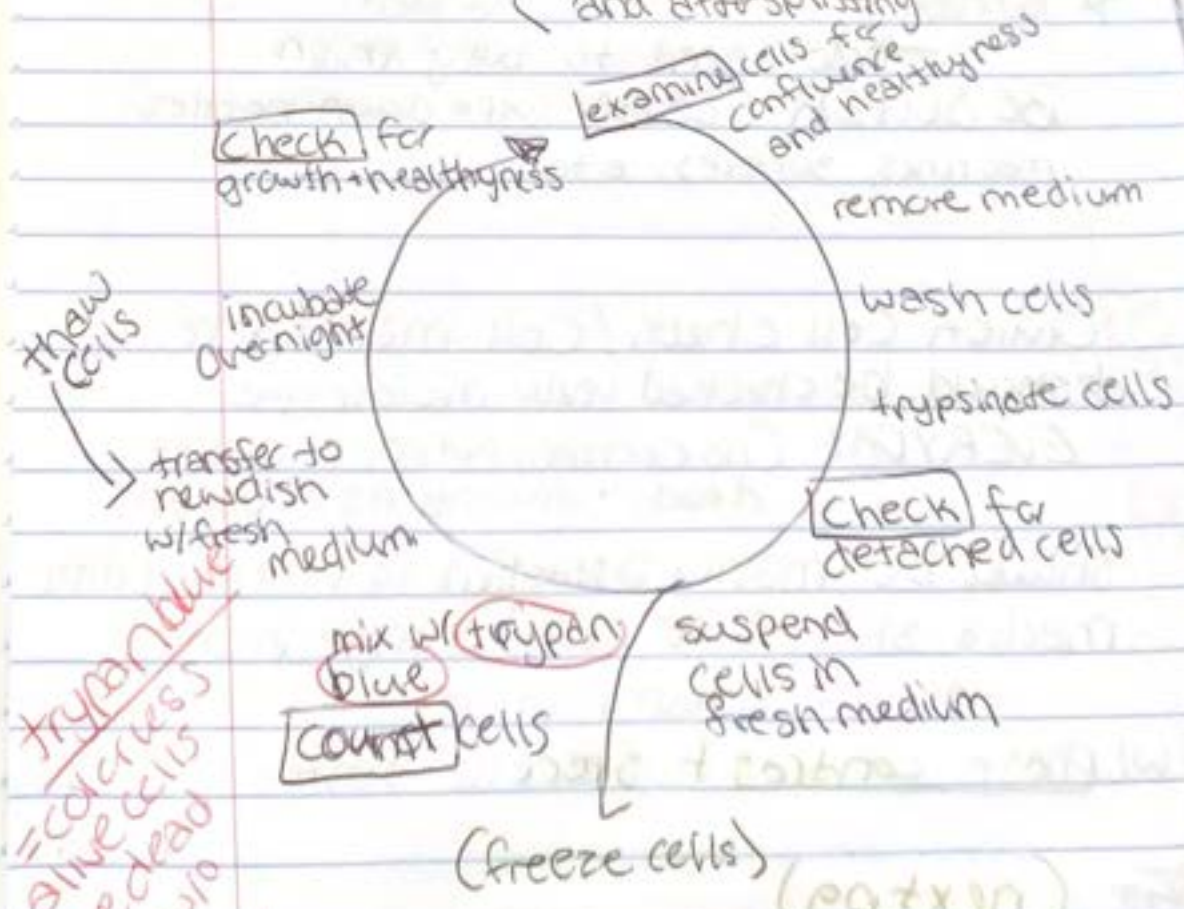 and after splitting
examine cells for
confluence
and healthyness
remove medium
wash cells
trypsinate cells
check for
detached cells
suspend
cells in
fresh medium
(freeze cells)
mix w/ trypan
blue
count cells
transfer to
new dish
w/ fresh
medium
thaw
cells
incubate
overnight
check for
growth + healthyness
trypan blue
=colorless
alive cells
dead